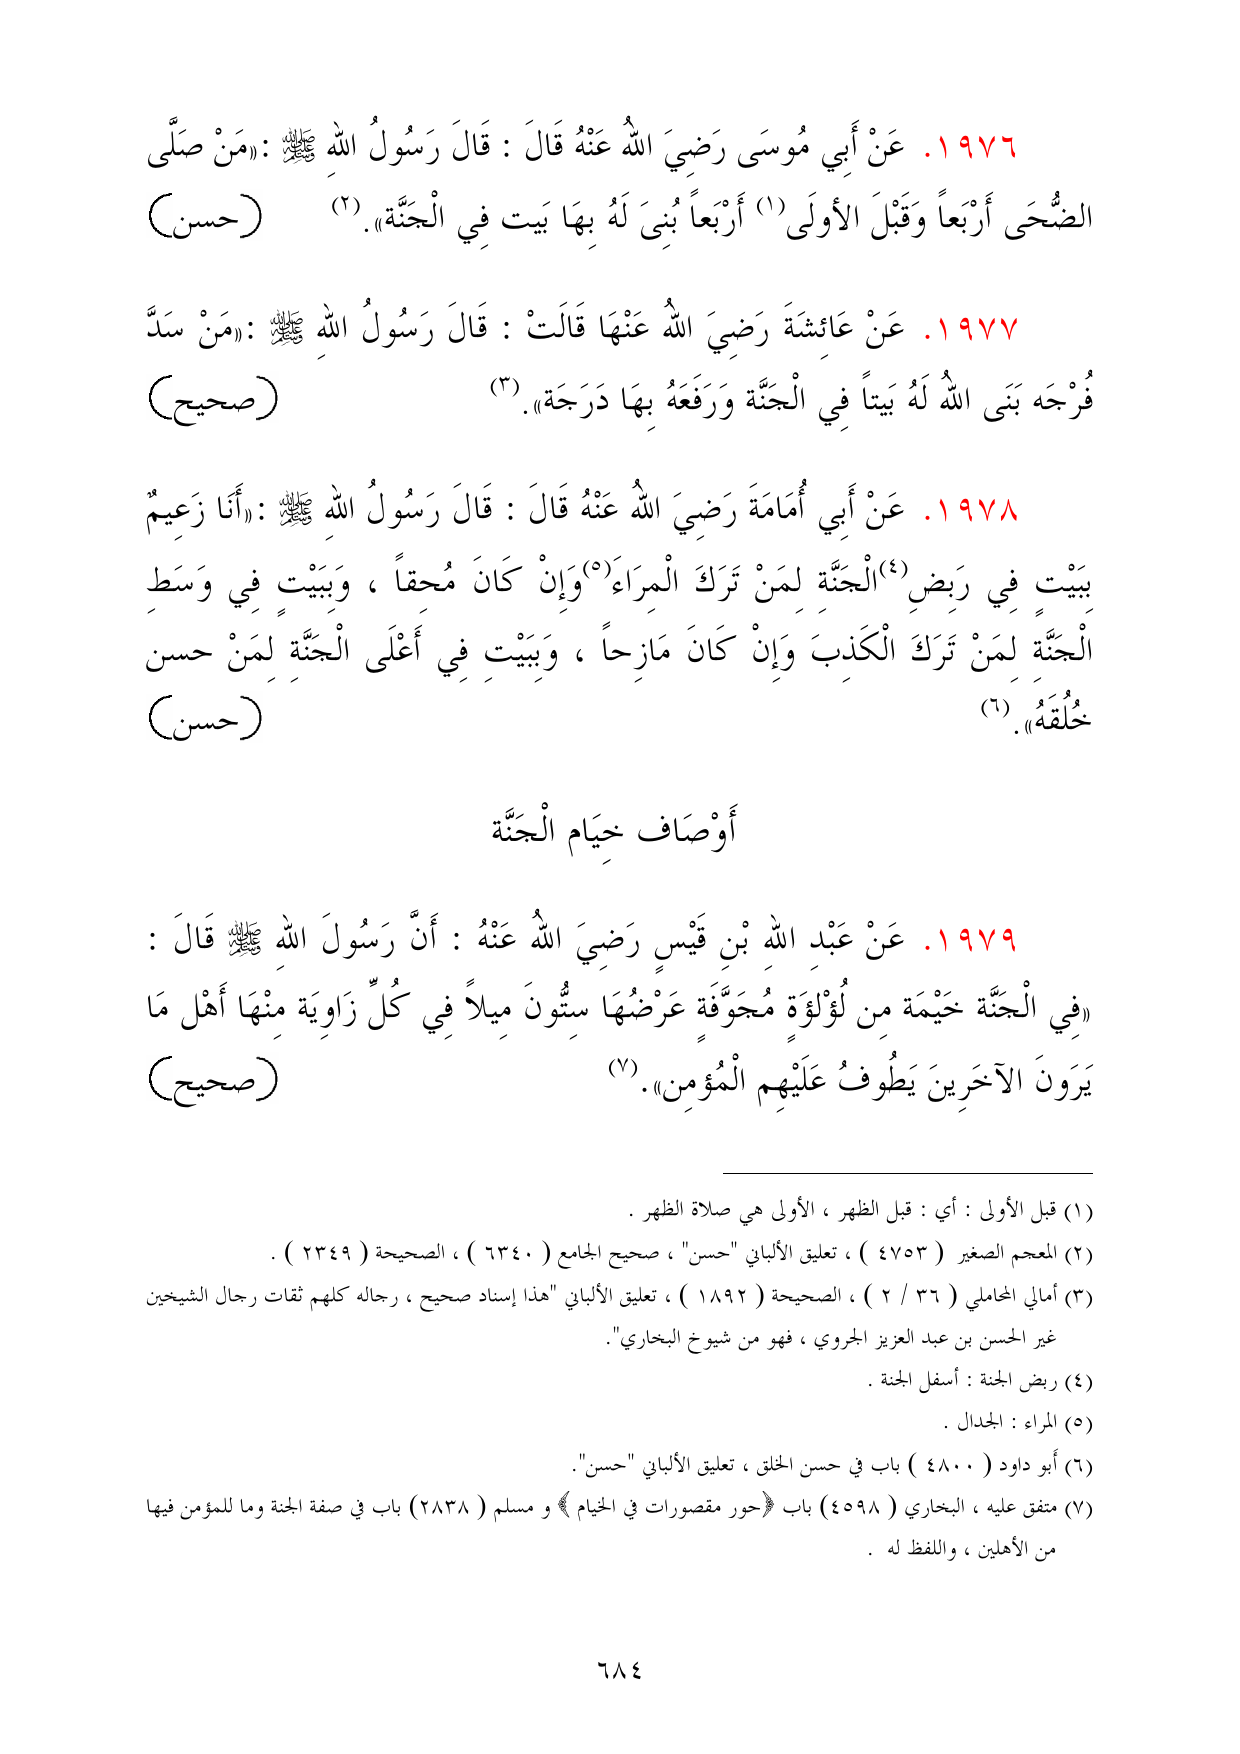 ١٩٧٦. عَنْ أَبِي مُوسَى رَضِيَ اللهُ عَنْهُ قَالَ : قَالَ رَسُولُ اللهِ ﷺ :«مَنْ صَلَّى
الضُّحَى أَرْبَعاً وَقَبْلَ الأولَى(١) أَرْبَعاً بُنِىَ لَهُ بِهَا بَيت فِي الْجَنَّة».(٢) (حسن)
١٩٧٧. عَنْ عَائِشَةَ رَضِيَ اللهُ عَنْهَا قَالَتْ : قَالَ رَسُولُ اللهِ ﷺ :«مَنْ سَدَّ
فُرْجَه بَنَى اللهُ لَهُ بَيتاً فِي الْجَنَّة وَرَفَعَهُ بِهَا دَرَجَة».(٣) (صحيح)
١٩٧٨. عَنْ أَبِي أُمَامَةَ رَضِيَ اللهُ عَنْهُ قَالَ : قَالَ رَسُولُ اللهِ ﷺ :«أَنَا زَعِيمٌ
بِبَيْتٍ فِي رَبَضِ(٤)الْجَنَّةِ لِمَنْ تَرَكَ الْمِرَاءَ(٥)وَإِنْ كَانَ مُحِقاً ، وَبِبَيْتٍ فِي وَسَطِ
الْجَنَّةِ لِمَنْ تَرَكَ الْكَذِبَ وَإِنْ كَانَ مَازِحاً ، وَبِبَيْتِ فِي أَعْلَى الْجَنَّةِ لِمَنْ حسن
خُلُقَهُ».(٦) (حسن)
أَوْصَاف خِيَام الْجَنَّة
١٩٧٩. عَنْ عَبْدِ اللهِ بْنِ قَيْسٍ رَضِيَ اللهُ عَنْهُ : أَنَّ رَسُولَ اللهِ ﷺ قَالَ :
«فِي الْجَنَّة خَيْمَة مِن لُؤْلؤَةٍ مُجَوَّفَةٍ عَرْضُهَا سِتُّونَ مِيلاً فِي كُلِّ زَاوِيَة مِنْهَا أَهْل مَا
يَرَونَ الآخَرِينَ يَطُوفُ عَلَيْهِم الْمُؤمِن».(٧) (صحيح)
(١) قبل الأولى : أي : قبل الظهر ، الأولى هي صلاة الظهر .
(٢) المعجم الصغير ( ٤٧٥٣ ) ، تعليق الألباني "حسن" ، صحيح الجامع ( ٦٣٤٠ ) ، الصحيحة ( ٢٣٤٩ ) .
(٣) أمالي المحاملي ( ٣٦ / ٢ ) ، الصحيحة ( ١٨٩٢ ) ، تعليق الألباني "هذا إسناد صحيح ، رجاله كلهم ثقات رجال الشيخين
غير الحسن بن عبد العزيز الجروي ، فهو من شيوخ البخاري".
(٤) ربض الجنة : أسفل الجنة .
(٥) المراء : الجدال .
(٦) أبو داود ( ٤٨٠٠ ) باب في حسن الخلق ، تعليق الألباني "حسن".
(٧) متفق عليه ، البخاري ( ٤٥٩٨) باب ﴿حور مقصورات في الخيام ﴾ و مسلم ( ٢٨٣٨) باب في صفة الجنة وما للمؤمن فيها
من الأهلين ، واللفظ له .
٦٨٤